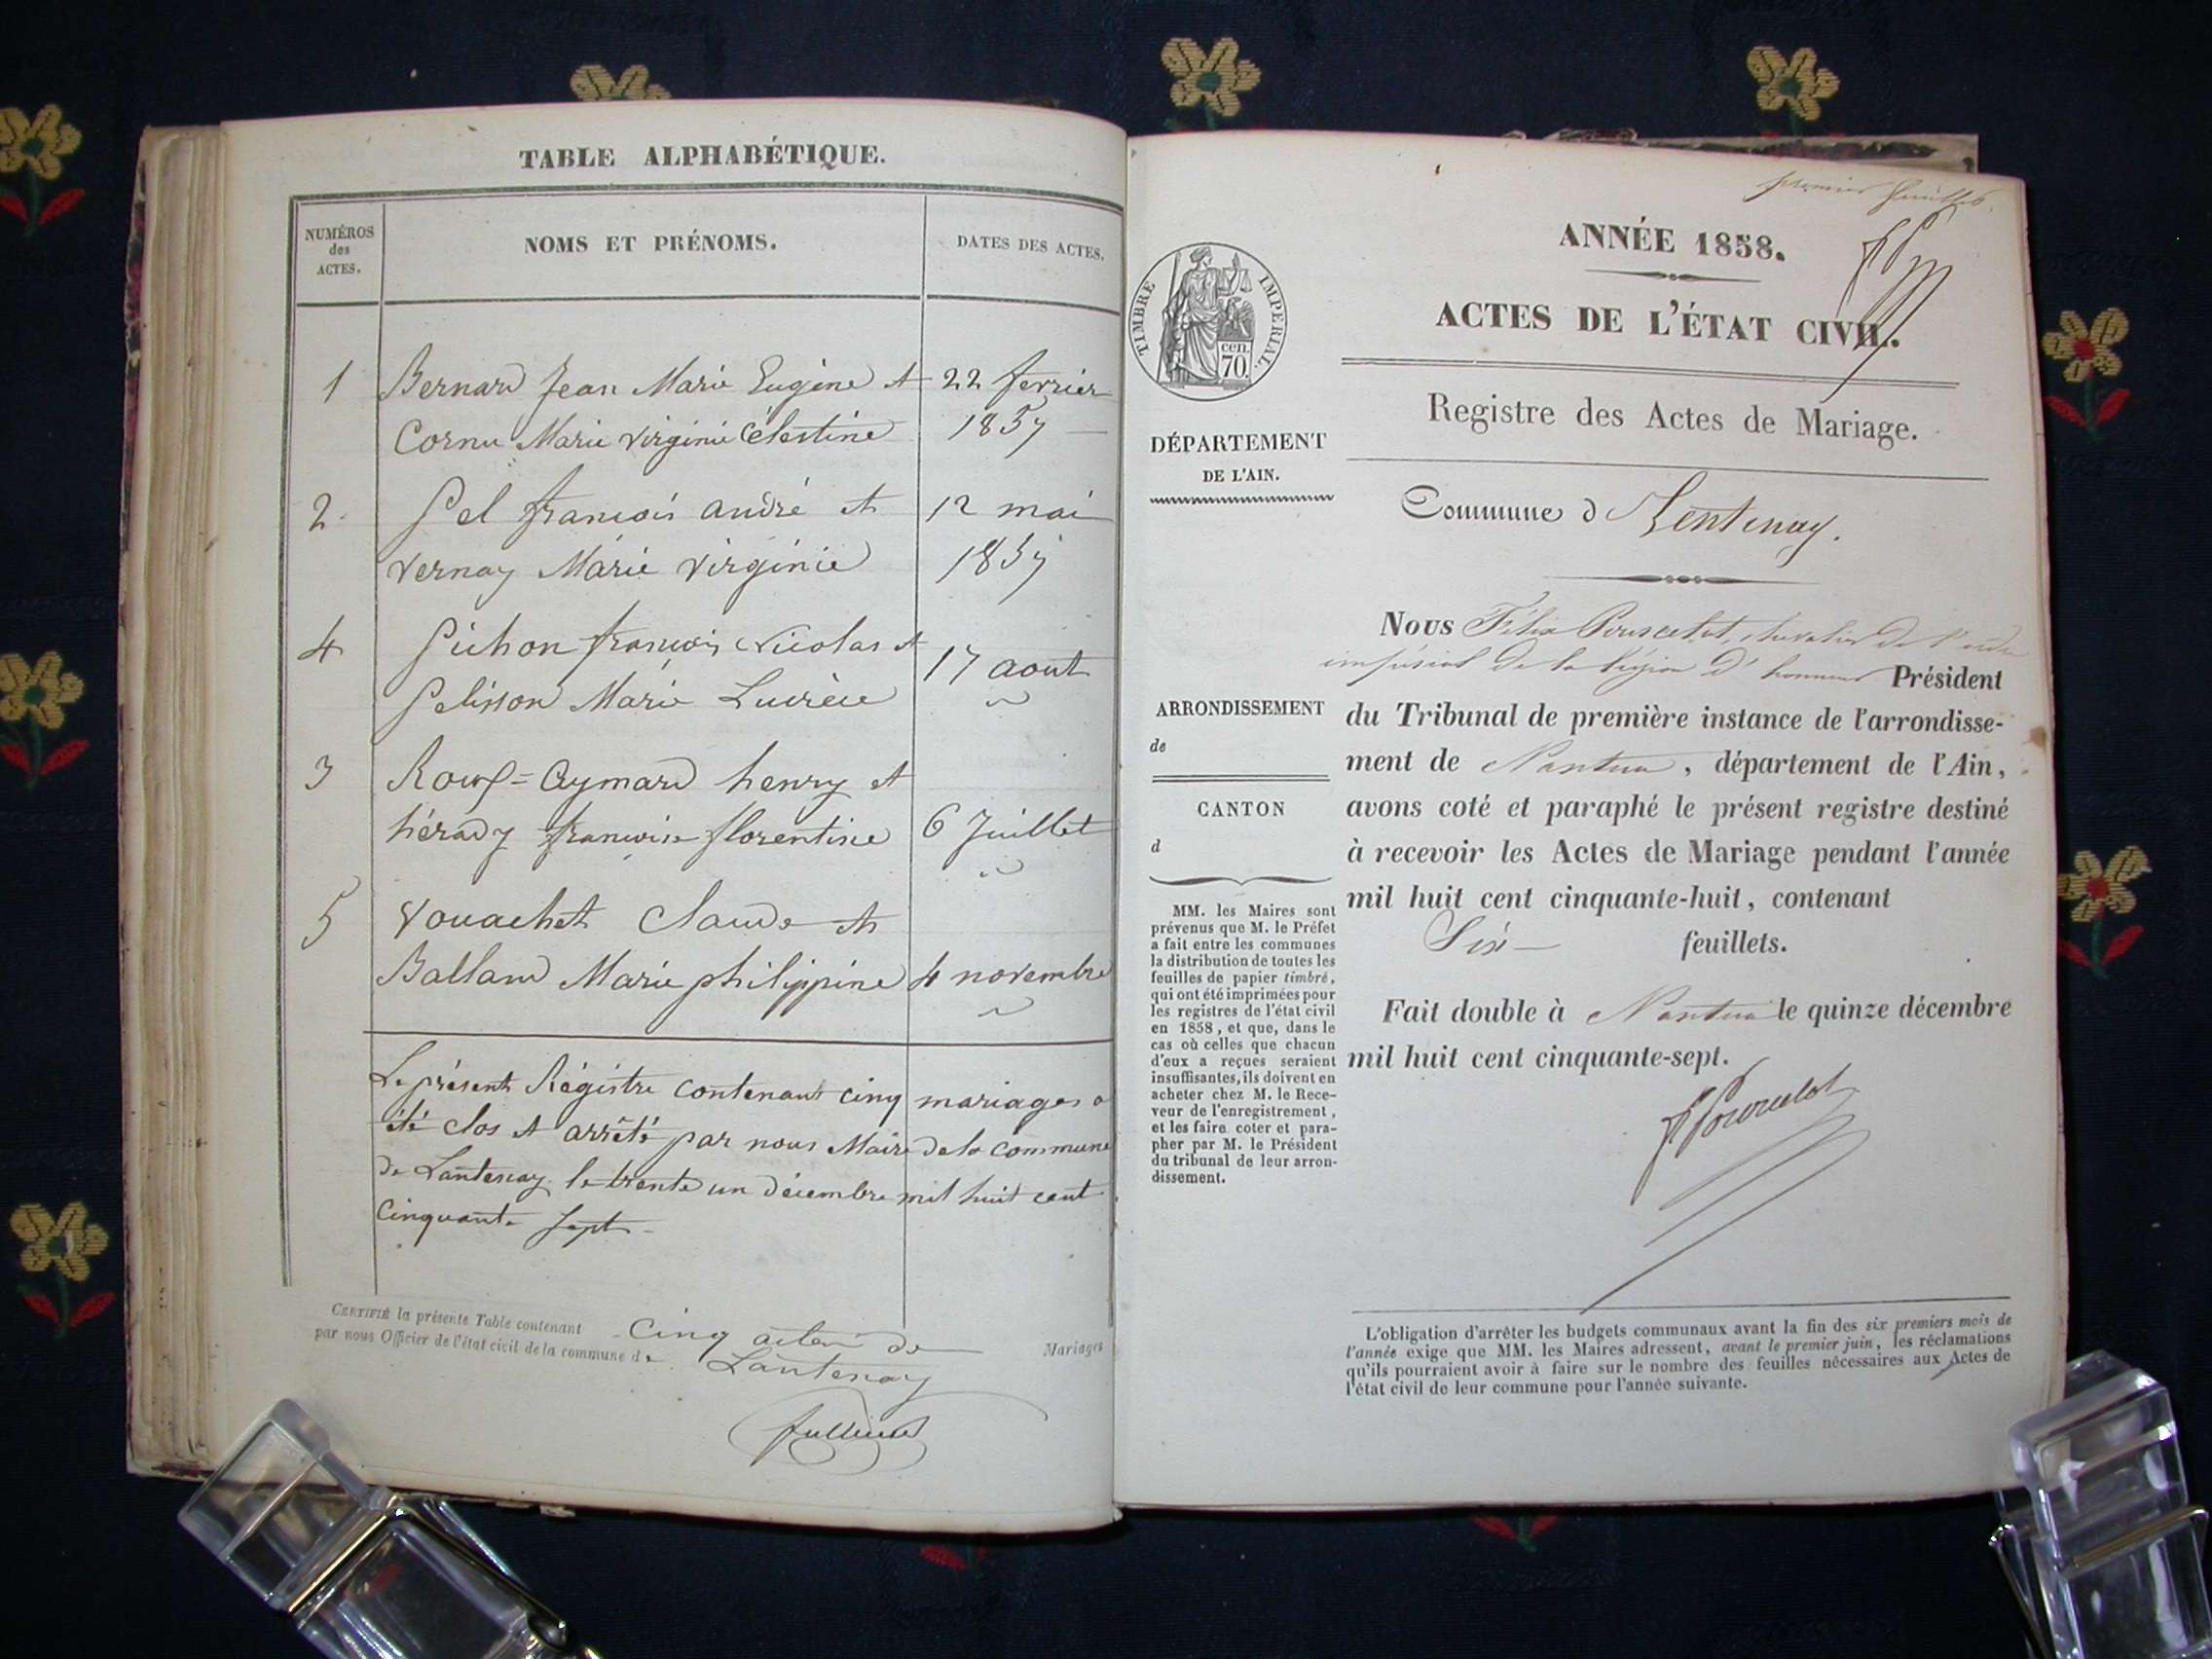 TABLE ALPHABÉTIQUE.
NUMÉROS
des
ACTES.
NOMS ET PRÉNOMS.
DATES DES ACTES.
1 Bernard Jean Marie Eugène et 22 février
Cornu Marie Virginie Célestine 1857
2 Pel françois andré et 12 mai
Vernay Marie Virginie 1857
4 Pichon françois Nicolas et 17 aout
Pelisson Marie Lucrèce
3 Aymard henry et
hérady françoise florentine 6 Juillet
5 Vouachet Claude et
Balland Marie philippine 4 novembre
Le présent Régistre contenant cinq mariages a
été clos et arrêté par nous Maire de la commune
de Lantenay le trente un décembre mil huit cent
Cinquante Sept
CERTIFIÉ la présente Table contenant Cinq actes de Mariages
par nous Officier de l'état civil de la commune de Lantenay
premier feuillet.
ANNÉE 1858.
TIMBRE IMPERIAL.
cen.
70.
ACTES DE L'ÉTAT CIVIL.
Registre des Actes de Mariage.
DÉPARTEMENT
DE L'AIN.
Commune d Lentenay.
Nous Félix chevalier de l'ordre
impérial de la légion d'honneur Président
ARRONDISSEMENT
de
du Tribunal de première instance de l'arrondisse-
ment de Nantua, département de l'Ain,
CANTON
d
avons coté et paraphé le présent registre destiné
à recevoir les Actes de Mariage pendant l'année
mil huit cent cinquante-huit, contenant
Six feuillets.
Fait double à Nantua le quinze décembre
mil huit cent cinquante-sept.
MM. les Maires sont
prévenus que M. le Préfet
a fait entre les communes
la distribution de toutes les
feuilles de papier timbré,
qui ont été imprimées pour
les registres de l'état civil
en 1858, et que, dans le
cas où celles que chacun
d'eux a reçues seraient
insuffisantes, ils doivent en
acheter chez M. le Rece-
veur de l'enregistrement,
et les faire coter et para-
pher par M. le Président
du tribunal de leur arron-
dissement.
L'obligation d'arrêter les budgets communaux avant la fin des six premiers mois de
l'année exige que MM. les Maires adressent, avant le premier juin, les réclamations
qu'ils pourraient avoir à faire sur le nombre des feuilles nécessaires aux Actes de
l'état civil de leur commune pour l'année suivante.